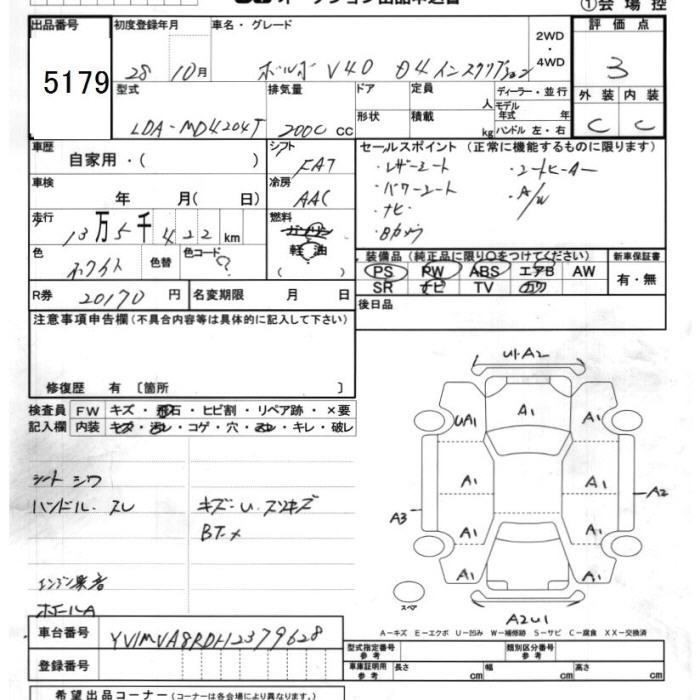 ①会場控
出品番号 初度登録年月 車名・グレード 2WD・4WD 評価点
5179 28 10月 ボルボ V40 D4 インスクリプション 3
型式 排気量 ドア 定員 人 ディーラー・並行
モデル年式 年
外装 内装
LDA-MD4204T 2000 cc 形状 積載 kg ハンドル 左・右 C C
車歴 自家用・( ) シフト FAT セールスポイント (正常に機能するものに限ります)
・レザーシート ・シートヒーター
車検 年 月( 日) 冷房 AAC ・パワーシート ・A/W
・ナビ
走行 13万5千422km 燃料 ガソリン ・Bカメラ
軽油
( )
色 ホワイト 色替 色コード ?
装備品 (純正品に限り○をつけてください) 新車保証書
PS PW ABS エアB AW 有・無
SR ナビ TV カワ
R券 20170 円 名変期限 月 日 後日品
注意事項申告欄 (不具合内容等は具体的に記入して下さい)
修復歴 有 〔箇所 〕
検査員記入欄 FW キズ・飛石・ヒビ割・リペア跡・×要
内装 キズ・汚レ・コゲ・穴・スレ・キレ・破レ
シート シワ
ハンドル. スレ キズ・U. スリキズ
BT.×
エンジン異音
ホイールA
U1.A2
UA1 A1 A1
A1 A1
A3 A2
A1 A1
A1 A1
スペア
A2U1
A－キズ E－エクボ U－凹み W－補修跡 S－サビ C－腐食 XX－交換済
車台番号 YV1MVA8RDH2379628 型式指定番号 参考 類別区分番号 参考
登録番号 車庫証明用 参考 長さ cm 幅 cm 高さ cm
希望出品コーナー (コーナーは各会場により異なります。)